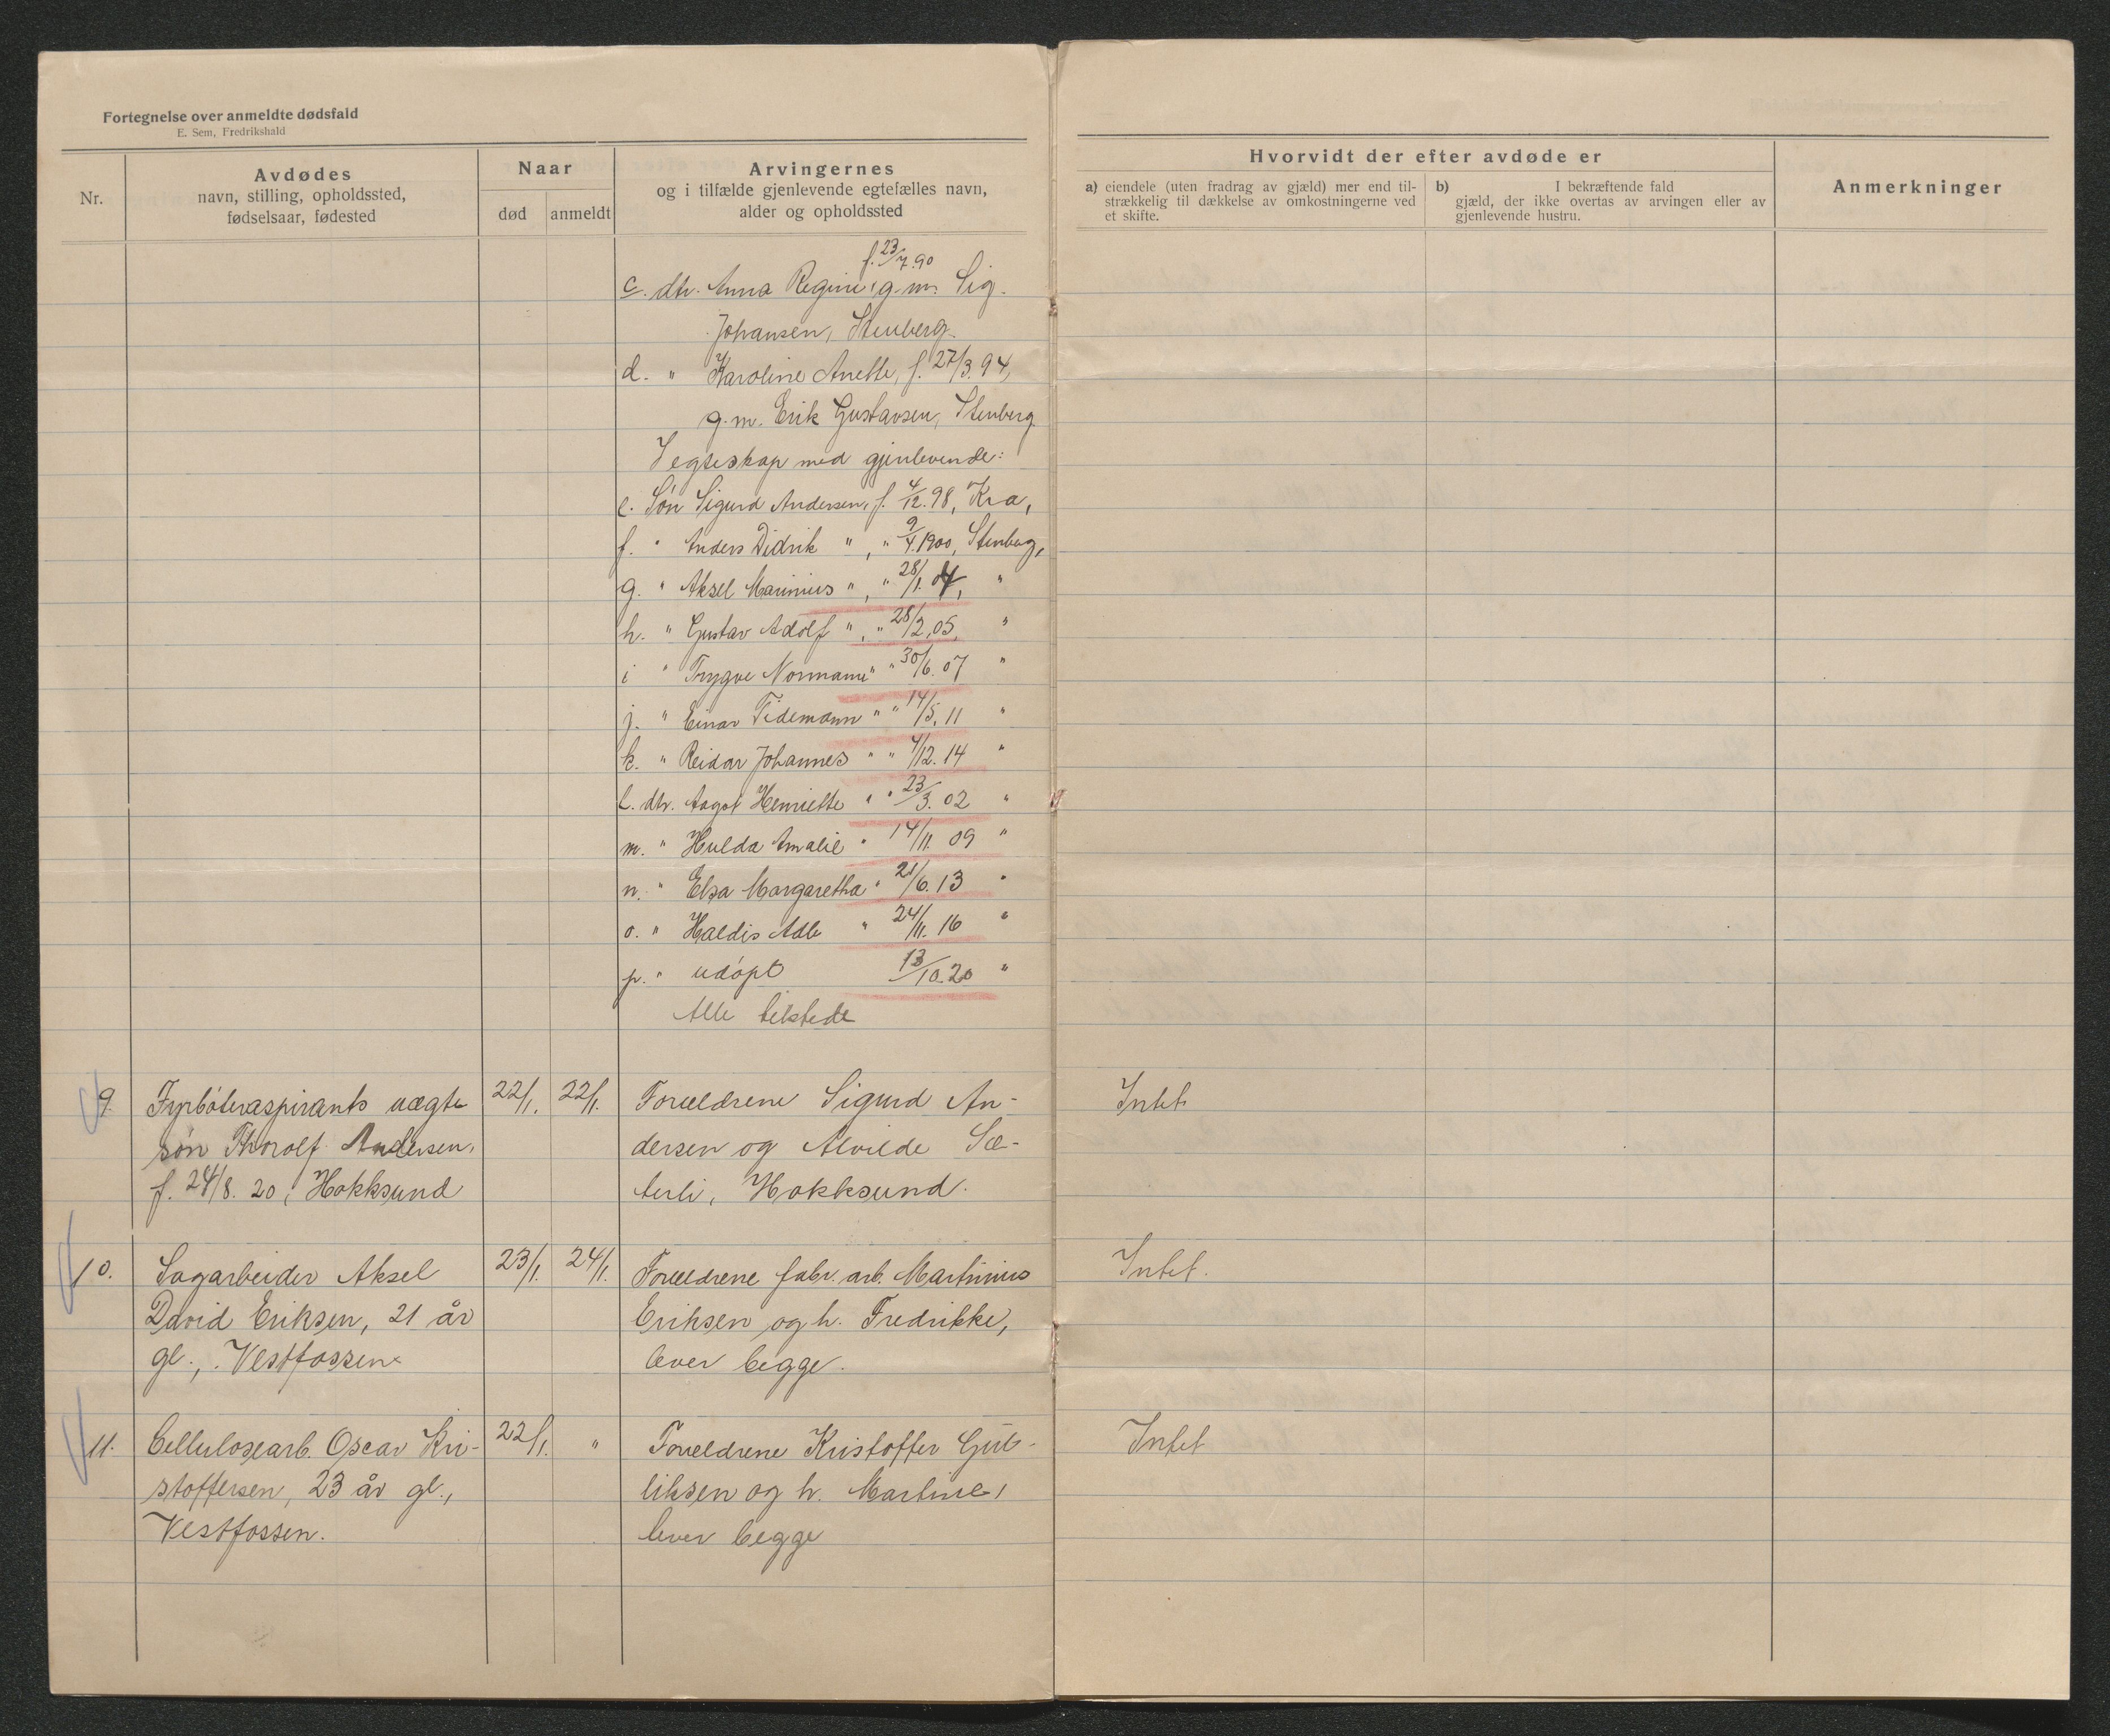 Fortegnelse over anmeldte dødsfald
E. Sem, Fredrikshald
Nr.
Avdødes
navn, stilling, opholdssted,
fødselsaar, fødested
Naar
død
anmeldt
Arvingernes
og i tilfælde gjenlevende egtefælles navn,
alder og opholdssted
Hvorvidt der efter avdøde er
a) eiendele (uten fradrag av gjæld) mer end til-
strækkelig til dækkelse av omkostningerne ved
et skifte.
b) I bekræftende fald
gjæld, der ikke overtas av arvingen eller av
gjenlevende hustru.
Anmerkninger
f. 23/7.90
c. dtr. Anna Regine, g.m. Sig.
Johansen, Stenberg.
d. " Karoline Anette, f. 27/3.94,
g.m. Erik Gustavsen, Stenberg
I egteskap med gjenlevende:
e. Søn Sigurd Andersen, f. 4/12.98, Kra,
f. " Anders Didrik " , " 9/4.1900, Stenberg,
g. " Aksel Marinius " , " 28/1.04, "
h. " Gustav Adolf " , " 28/2.05, "
i " Trygve Normann " " 30/6.07 "
j. " Einar Tidemann " " 14/5.11 "
k. " Reidar Johannes " " 4/12.14 "
l. dtr. Aagot Henriette " " 23/3.02 "
m. " Hulda Amalie " 14/11.09 "
n. " Elsa Margaretha " 21/6.13 "
o. " Haldis " 24/11.16 "
p. " udøpt 13/10.20 "
Alle tilstede
9. Fyrbøteraspirants uægte 22/1. 22/1. Forældrene Sigurd An- Intet
søn Thorolf Andersen, dersen og Alvilde Sæ-
f. 24/8.20, Hokksund terli, Hokksund.
10. Sagarbeider Aksel 23/1. 24/1. Forældrene fabr. arb. Martinius Intet.
David Eriksen, 21 år Eriksen og h. Fredrikke,
gl., Vestfossen lever begge.
11. Cellulosearb. Oscar Kri- 22/1. " Forældrene Kristoffer Gul- Intet
stoffersen, 23 år gl., liksen og h. Martine,
Vestfossen. lever begge